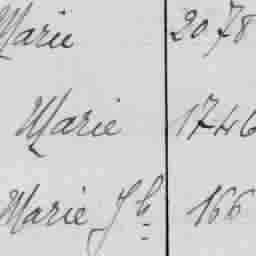 Marie 2078
Marie 1746
Marie Jh 166